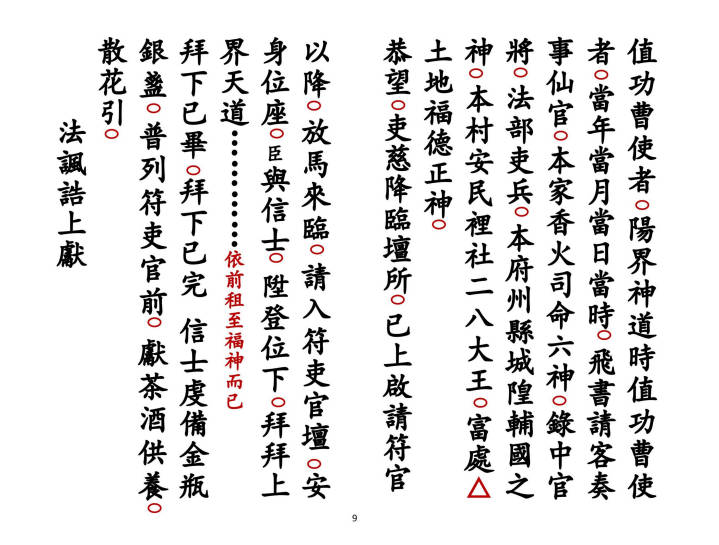 值功曹使者○陽界神道時值功曹使
者○當年當月當日當時○飛書請客奏
事仙官○本家香火司命六神○錄中官
將○法部吏兵○本府州縣城隍輔國之
神○本村安民裡社二八大王○富處△
土地福德正神○
恭望○吏慈降臨壇所○已上啟請符官
以降○放馬來臨○請入符吏官壇○安
身位座○臣與信士○陞登位下○拜拜上
界天道••••••••••依前祖至福神而已
拜下已畢○拜下已完 信士虔備金瓶
銀盞○普列符吏官前○獻茶酒供養○
散花引○
法諷誥上獻
9